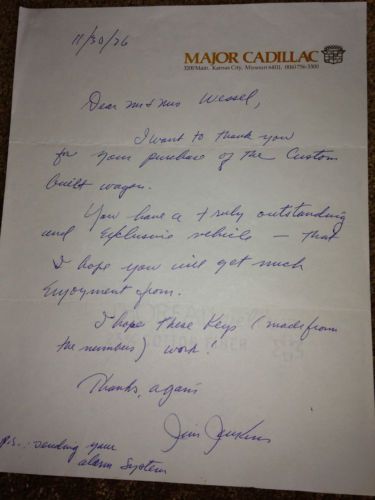 11/30/76
MAJOR CADILLAC
3200 Main, Kansas City, Missouri 64111, (816) 756-3300
Dear Mr & Mrs Wessel,
I want to thank you
for your purchase of the Custom
built wagon.
You have a truly outstanding
and Exclusive vehicle – that
I hope you will get much
Enjoyment from.
I hope these Keys (made from
the numbers) work!
Thanks, again
Jim Jenkins
P.S.: sending your
alarm System